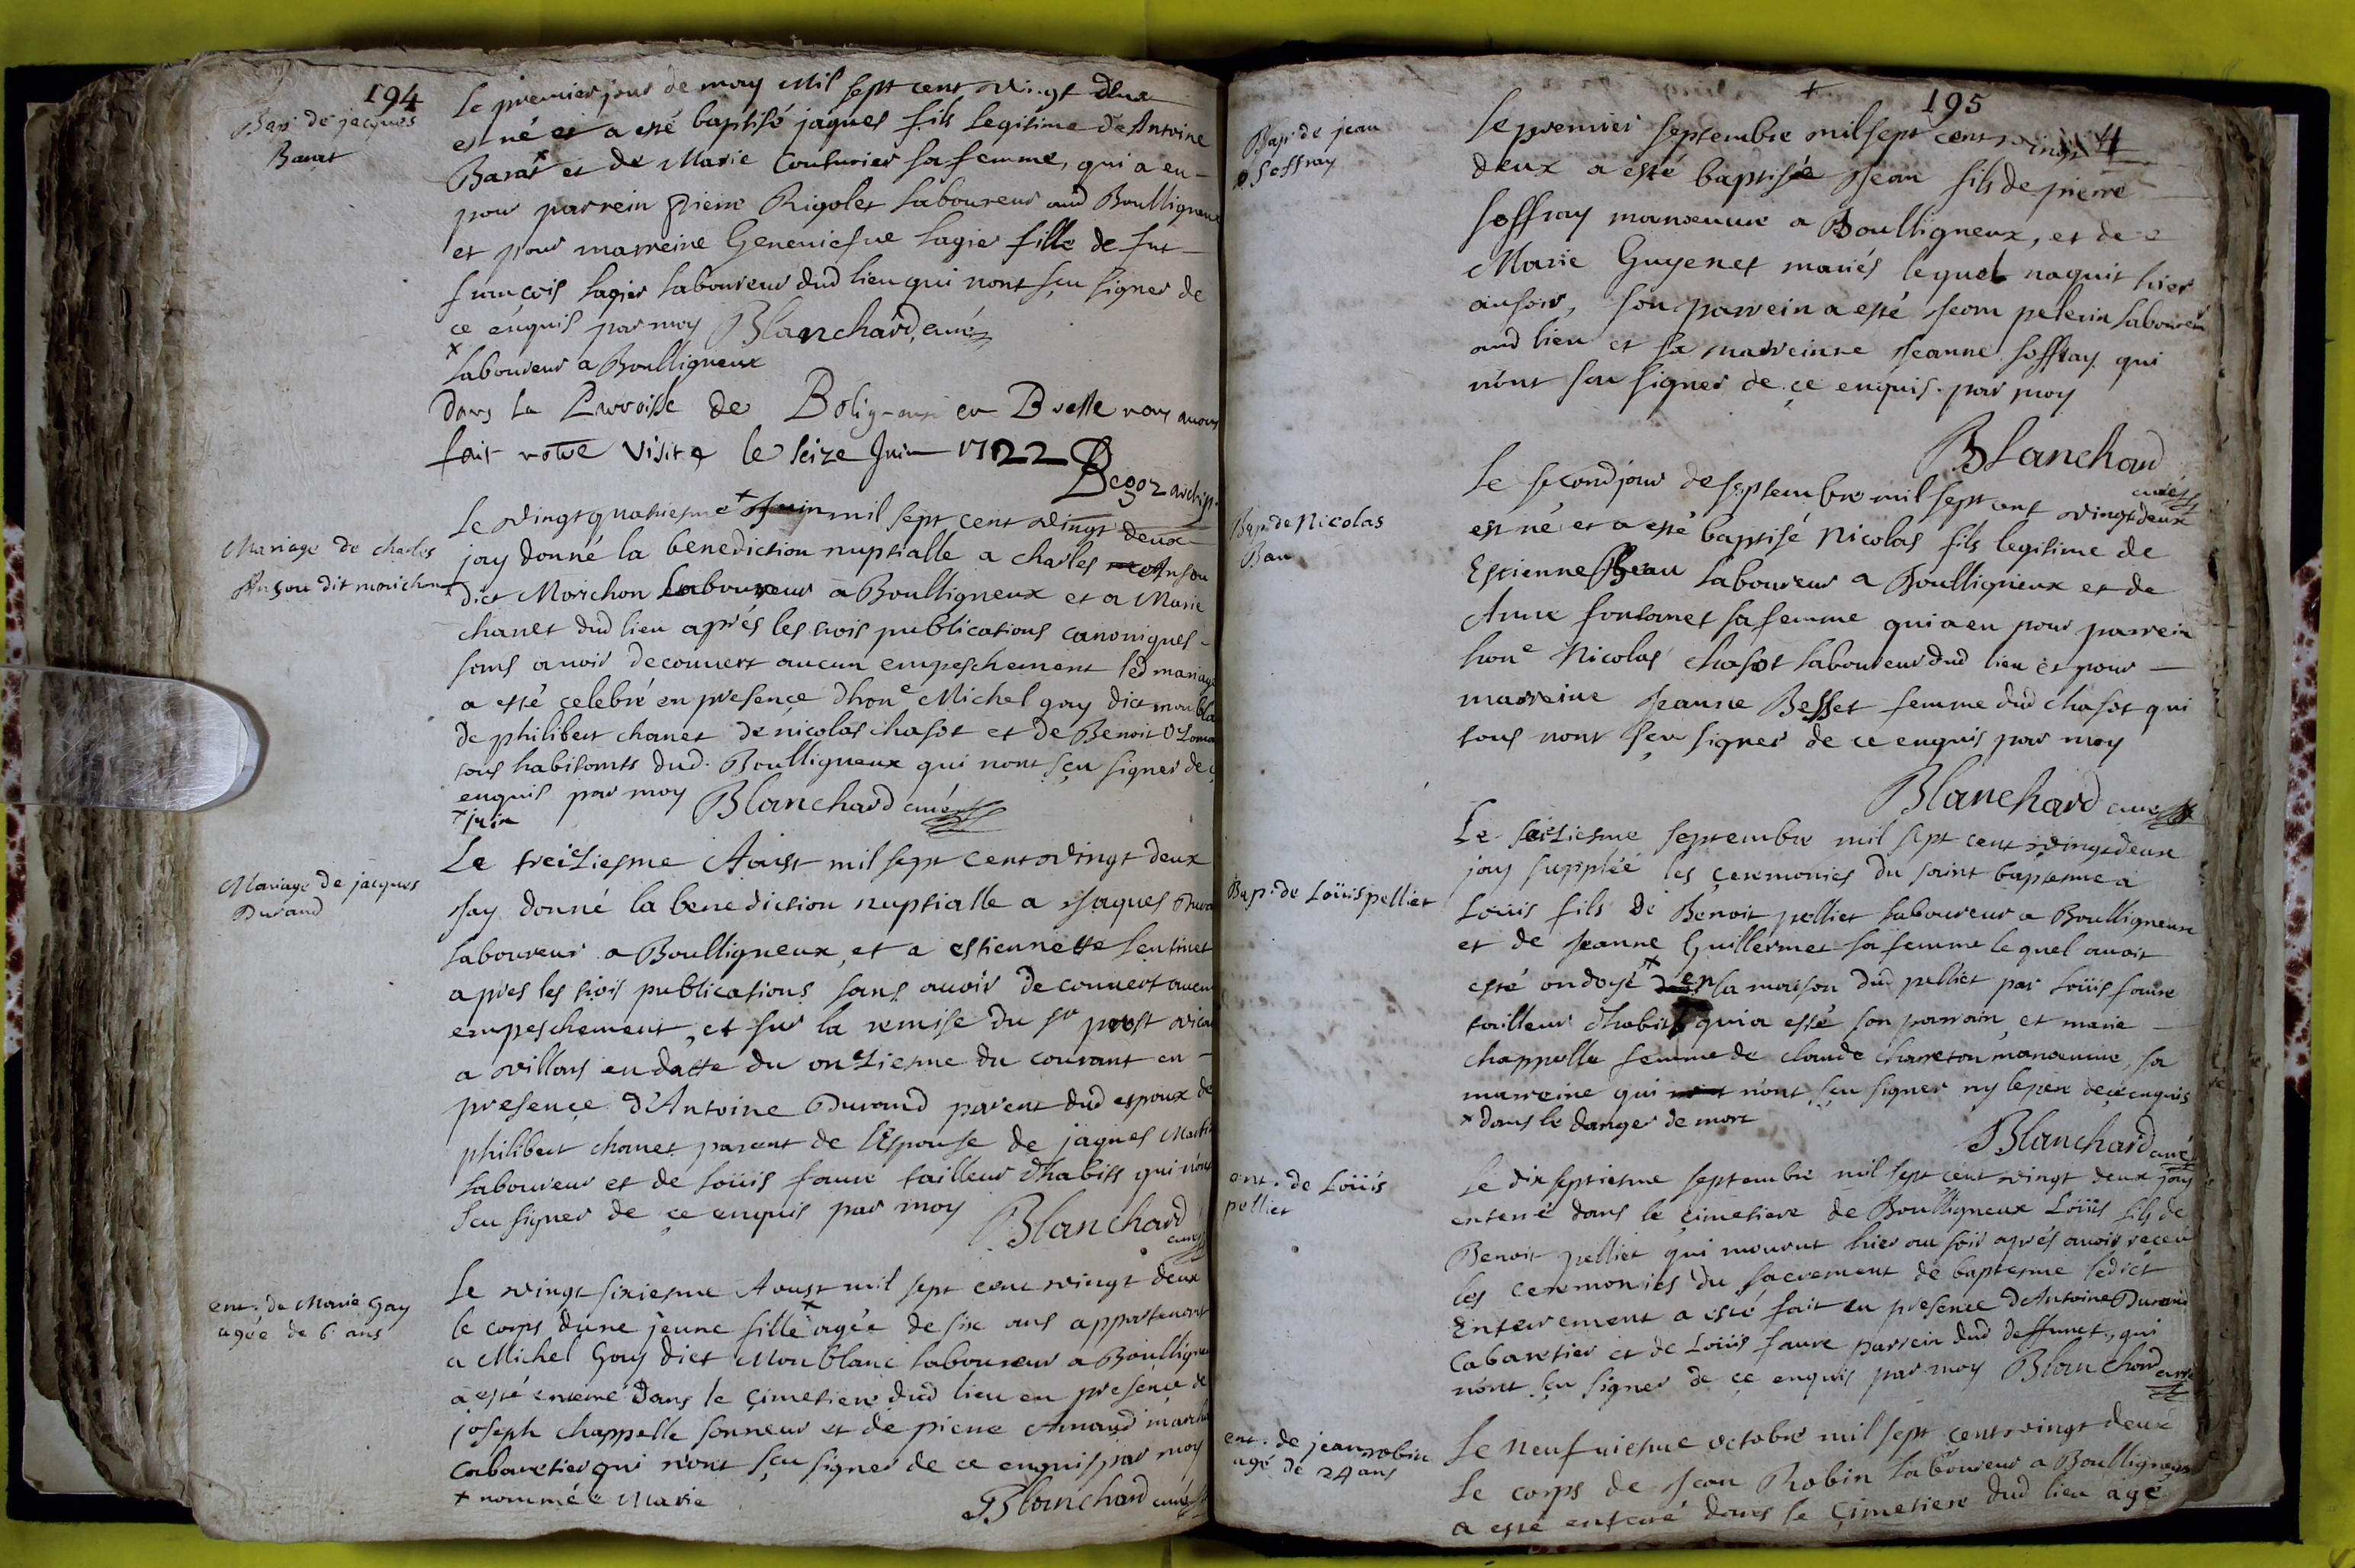 194
Bap. de jacques
Barat
Le premier jour de may Mil sept cent vingt deux
est né et a esté baptisé jaques fils legitime de Antoine
Barat x et de Marie Cousturier sa femme, qui a eu
pour parrein pierre Rigolet laboureur aud Boulligneux
et pour marreine Geneuiefue lagier fille de fut
françois lagier laboureur dud lieu qui nont sçu signer de
ce enquis par moy Blanchard, curé
x
laboureur a Boulligneux
Dans la Parroisse de en Bresse nous auons
fait notre Visite le seize Juin 1722
Begoz archip.
Mariage de charles
Anson dit morichon
Le vingt quatriesme x mil sept cent vingt deux
jay donné la benediction nuptialle a charles Anson
dict Morichon Laboureur a Boulligneux et a Marie
chanet dud lieu aprés les trois publications canoniques
sans auoir decouuert aucun empeschement led mariage
a esté celebré en presence dhon.e Michel gay dict mon bla
de philibert chanet de nicolas chasot et de Benoit
tous habitants dud. Boulligneux qui nont sçu signer de ç
enquis par moy Blanchard curé
x juin
Mariage de jacques
Durand
Le treiziesme Aoust mil sept cent vingt deux
Jay donné la benediction nuptialle a Jaques Dura
laboureur a Boulligneux, et a estiennette sentinet
apres les trois publications sans auoir decouuert aucun
empeschement, et sur la remise du sr prost vicai
a villars en datte du onziesme du courant en
presençe d'Antoine Durand parent dud espoux de
philibert chanet parent de l'Espouse de jaques Martin
laboureur et de Loüis faure tailleur d'habits qui nont
sçu signer de çe enquis par moy Blanchard
curé
ent. de Marie Gay
agée de 6 ans
Le vingt sixiesme Aoust mil sept cent vingt deux
le corps dune jeune fille x agée de six ans appartenant
a Michel Gay dict Monblanc laboureur a Boullign
a esté enterré dans le çimetiere dud lieu en presençe de
joseph chappelle sonneur et de pierre Arnaud march
cabaretier qui n'ont sçu signer de ce enquis par moy
x nommée Marie Blanchard curé
195
4
Bap. de jean
soffray
Le premier septembre mil sept cent vingt
deux a esté baptisé Jean fils de pierre
soffray manœuure a Boulligneux, et de
Marie Guyenet mariés lequel naquit hier
au soir, son parrein a esté Jean pelerin laboureur
aud lieu et sa marreinne Jeanne soffray qui
n'ont sçu signer de çe enquis par moy
Blanchard
curé
Bap. de Nicolas
Bau
Le second jour de septembre mil sept cent vingt deux
est né et a esté baptisé Nicolas fils legitime de
Estienne Beau laboureur a Boulligneux et de
Anne fontanet sa femme qui a eu pour parrein
hon.e Nicolas chasot laboureur dud lieu et pour
marreine Jeanne Besset femme dud chasot qui
tous nont sçu signer de ce enquis par moy
Blanchard curé
Bap. de Loüis pelliet
Le seiziesme septembre mil sept cent vingt deux
jay supplée les çeremonies du saint baptesme a
Loüis fils de Benoit pelliet laboureur a Boulligneux
et de Jeanne Guillermet sa femme lequel auoit
esté ondoyé x en la maison dud pelliet par Loüis faure
tailleur d'habits qui a esté son parrain et marie
chappelle femme de claude charreton manœuure, sa
marreine qui n'ont sçu signer ny le pere de çe enquis
x dans le danger de mort
Blanchard curé
ent. de Loüis
pelliet
Le dix septiesme septembre mil sept cent vingt deux jay
enterré dans le çimetiere de Boulligneux Loüis fils de
Benoit pelliet qui mourut hier au soir aprés auoir reçeu
les ceremonies du sacrement de baptesme ledict
Enterrement a esté fait en presence d'Antoine Durand
cabaretier et de Loüis faure parrein dud deffunct, qui
n'ont sçu signer de çe enquis par moy Blanchard curé
ent. de jean robin
agé de 24 ans
Le neufuiesme octobre mil sept cent vingt deux
Le corps de Jean Robin laboureur a Boulligneux
a esté enterré dans le çimetiere dud lieu agé